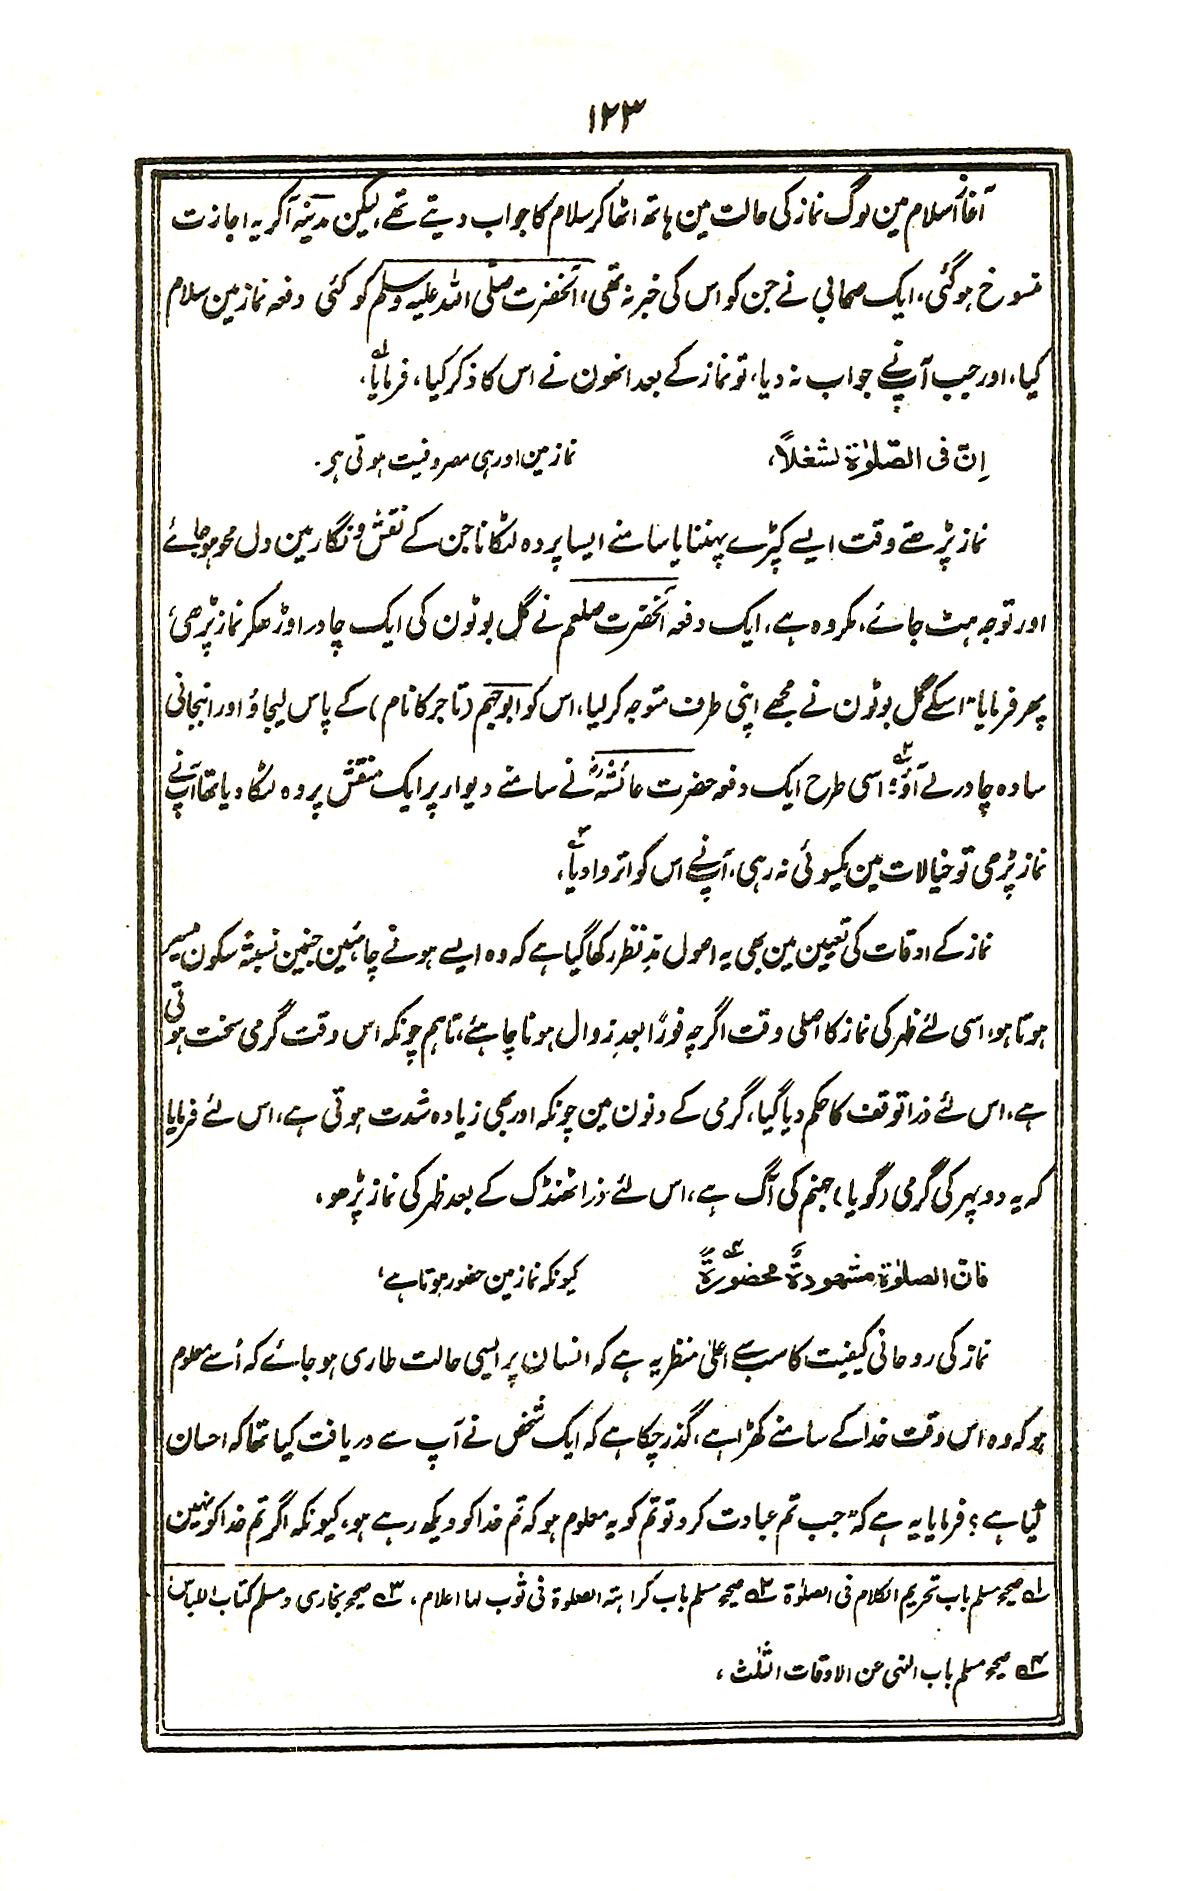 ۱۲۳
آغاز اسلام مین لوگ نماز کی حالت مین ہاتھ اٹھا کر سلام کا جواب دیتے تھے، لیکن مدینہ آکر یہ اجازت
منسوخ ہوگئی، ایک صحابی نے جن کو اس کی خبر نہ تھی، آنحضرت صلی اللہ علیہ وسلم کو کئی دفعہ نماز مین سلام
کیا، اور جب آپنے جواب نہ دیا، تو نماز کے بعد انھون نے اس کا ذکر کیا، فرمایاؔ۱،
اِنّ فی الصّلوٰۃ لشغلاً، نماز مین اور ہی مصروفیت ہوتی ہر۔
نماز پڑھتے وقت ایسے کپڑے پہننا یا سامنے ایسا پردہ لٹکانا جن کے نقش و نگار مین دل محو ہو جائے
اور توجہ ہٹ جائے، مکروہ ہے، ایک دفعہ آنحضرت صلعم نے گل بوٹون کی ایک چادر اوڑھکر نماز پڑھی،
پھر فرمایا "اسکے گل بوٹون نے مجھے اپنی طرف متوجہ کر لیا، اس کو ابوجہم (تاجر کا نام) کے پاس لیجاؤ اور انبجانی
سادہ چادر لے آؤ۲" اسی طرح ایک دفعہ حضرت عائشہؓ نے سامنے دیوار پر ایک منقش پردہ لٹکا دیا تھا آپنے
نماز پڑھی تو خیالات مین یکسوئی نہ رہی، آپنے اس کو اتروا دیا۳،
نماز کے اوقات کی تعیین مین بھی یہ اصول مدِّ نظر رکھا گیا ہے کہ وہ ایسے ہونے چاہئین جنمین نسبتہً سکون میسر
ہوتا ہو، اسی لئے ظہر کی نماز کا اصلی وقت اگرچہ فورًا بعدِ زوال ہونا چاہئے، تاہم چونکہ اس وقت گرمی سخت ہوتی
ہے، اس لئے ذرا توقف کا حکم دیا گیا، گرمی کے دنون مین چونکہ اور بھی زیادہ شدت ہوتی ہے، اس لئے فرمایا
کہ یہ دوپہر کی گرمی (گویا) جہنم کی آگ ہے، اس لئے ذرا ٹھنڈک کے بعد ظہر کی نماز پڑھو،
فانّ الصلوٰۃ مشھودۃٌ محضورۃٌ۴ کیونکہ نماز مین حضور ہوتا ہے،
نماز کی روحانی کیفیت کا سب سے اعلیٰ منظر یہ ہے کہ انسان پر ایسی حالت طاری ہو جائے کہ اُسے معلوم
ہو کہ وہ اس وقت خدا کے سامنے کھڑا ہے، گذر چکا ہے کہ ایک شخص نے آپ سے دریافت کیا تھا کہ احسان
کیا ہے؟ فرمایا یہ ہے کہ "جب تم عبادت کرو تو تم کو یہ معلوم ہو کہ تم خدا کو دیکھ رہے ہو، کیونکہ اگر تم خدا کو نہین
۱؎ صحیح مسلم باب تحریم الکلام فی الصلوٰۃ ۲؎ صحیح مسلم باب کراہتہ الصلوۃ فی ثوب لہا اعلام، ۳؎ صحیح بخاری و مسلم کتاب اللباس
۴؎ صحیح مسلم باب النہی عن الاوقات الثلٰث،